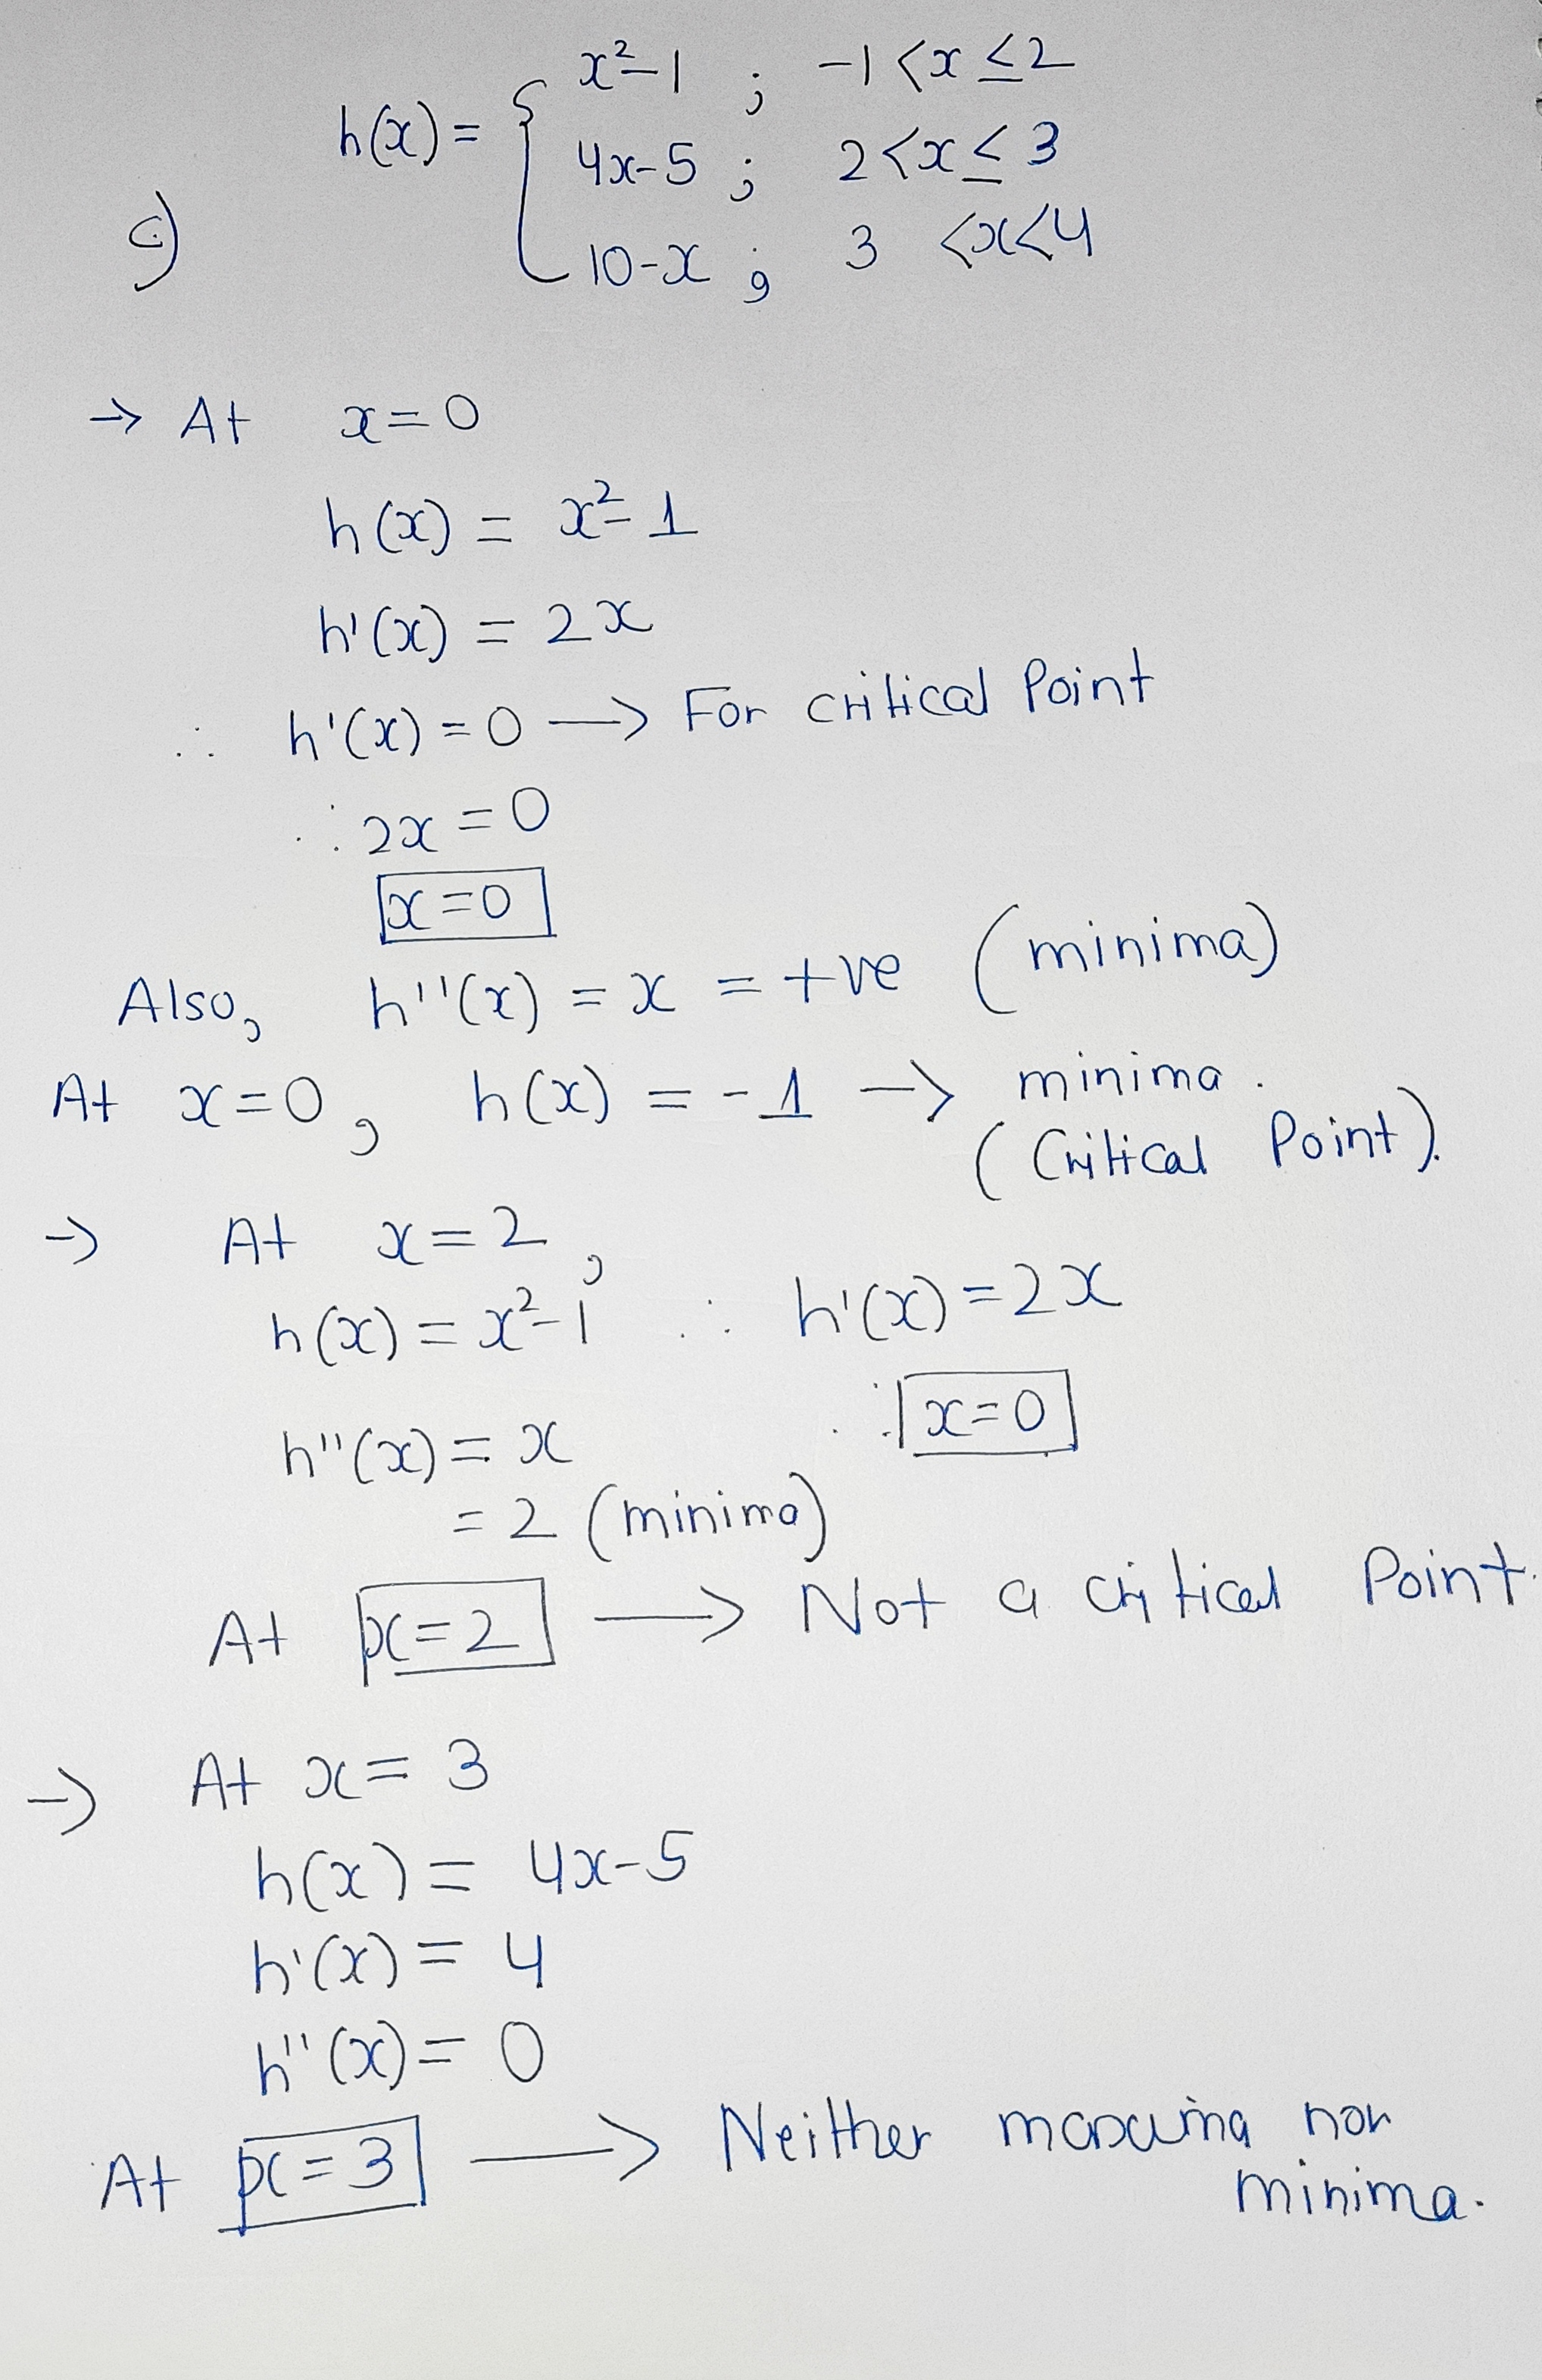 h(x) = { x²-1 ; -1 < x ≤ 2
4x-5 ; 2 < x ≤ 3
10-x ; 3 < x < 4
c)
→ At x=0
h(x) = x²-1
h'(x) = 2x
∴ h'(x) = 0 → For critical Point
∴ 2x = 0
x=0
Also, h''(x) = x = +ve (minima)
At x=0, h(x) = -1 → minima.
(Critical Point).
→ At x=2,
h(x) = x²-1 ∴ h'(x) = 2x
∴ x=0
h''(x) = x
= 2 (minima)
At x=2 → Not a critical Point.
→ At x = 3
h(x) = 4x-5
h'(x) = 4
h''(x) = 0
At x=3 → Neither maxima nor
minima.